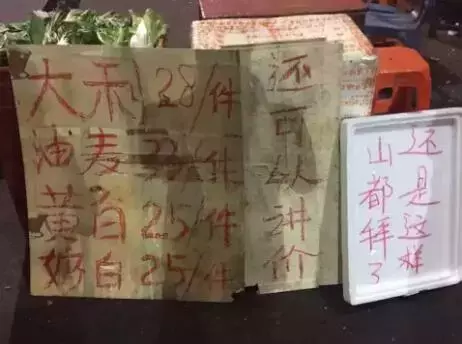 大禾 28/件
浦麦 /件
黄白 25/件
奶白 25/件
还可以讲价
山都拜了
还是这样